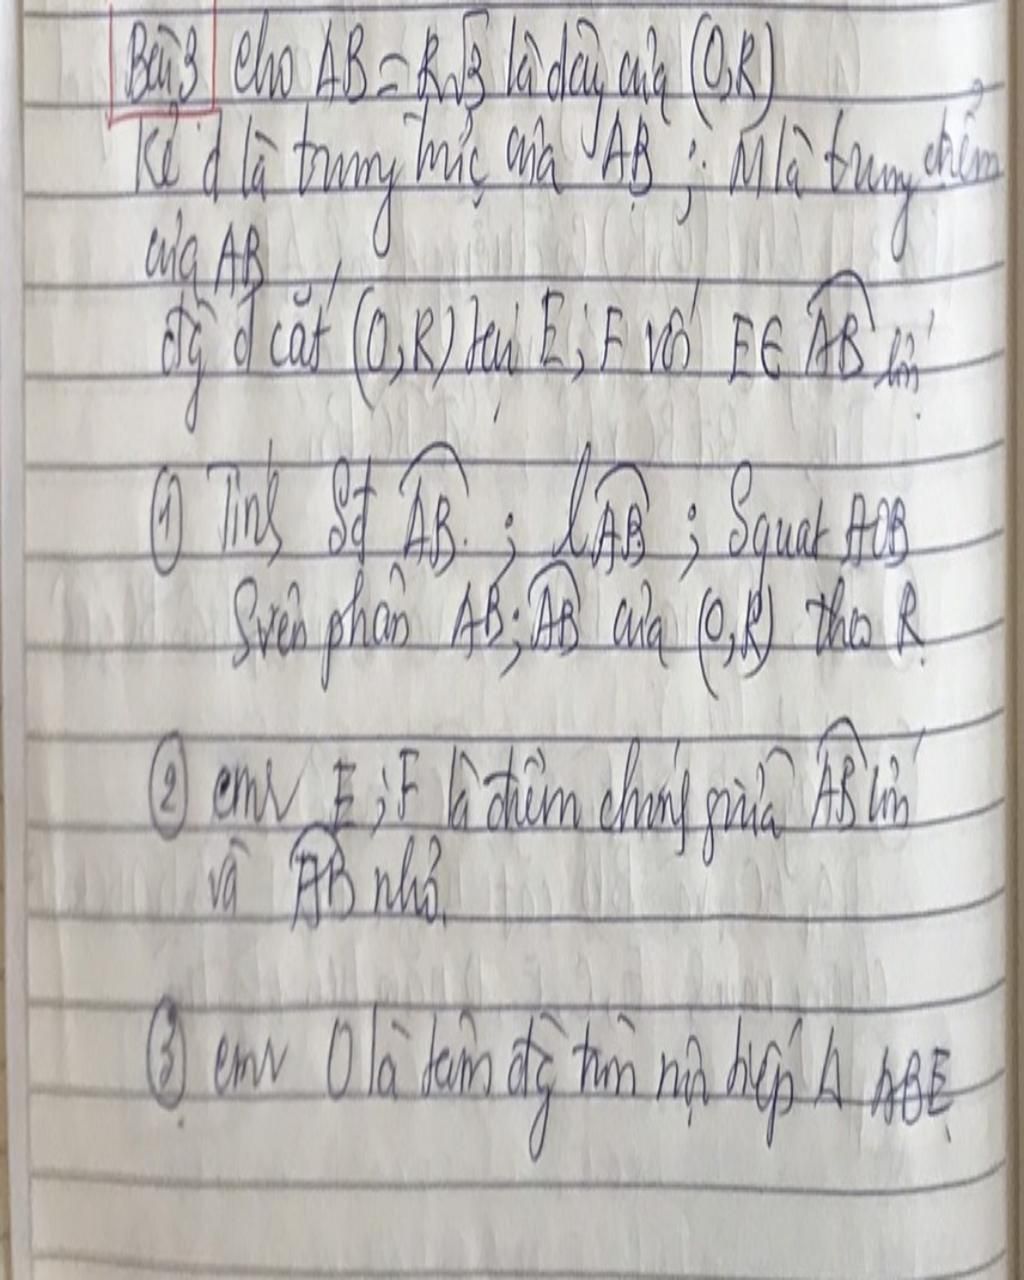 Bài 3 cho AB = R√3 là dây của (O,R)
Kẻ d là trung trực của AB ; M là trung điểm
của AB
đg d cắt (O,R) tại E ; F với E ∈ AB lớn
① Tính Sđ AB ; l AB ; Squạt AOB
Sviên phân AB ; AB của (O,R) theo R
② cmr E ; F là điểm chính giữa AB lớn
và AB nhỏ.
③ cmr O là tâm đg tròn nội tiếp Δ ABE